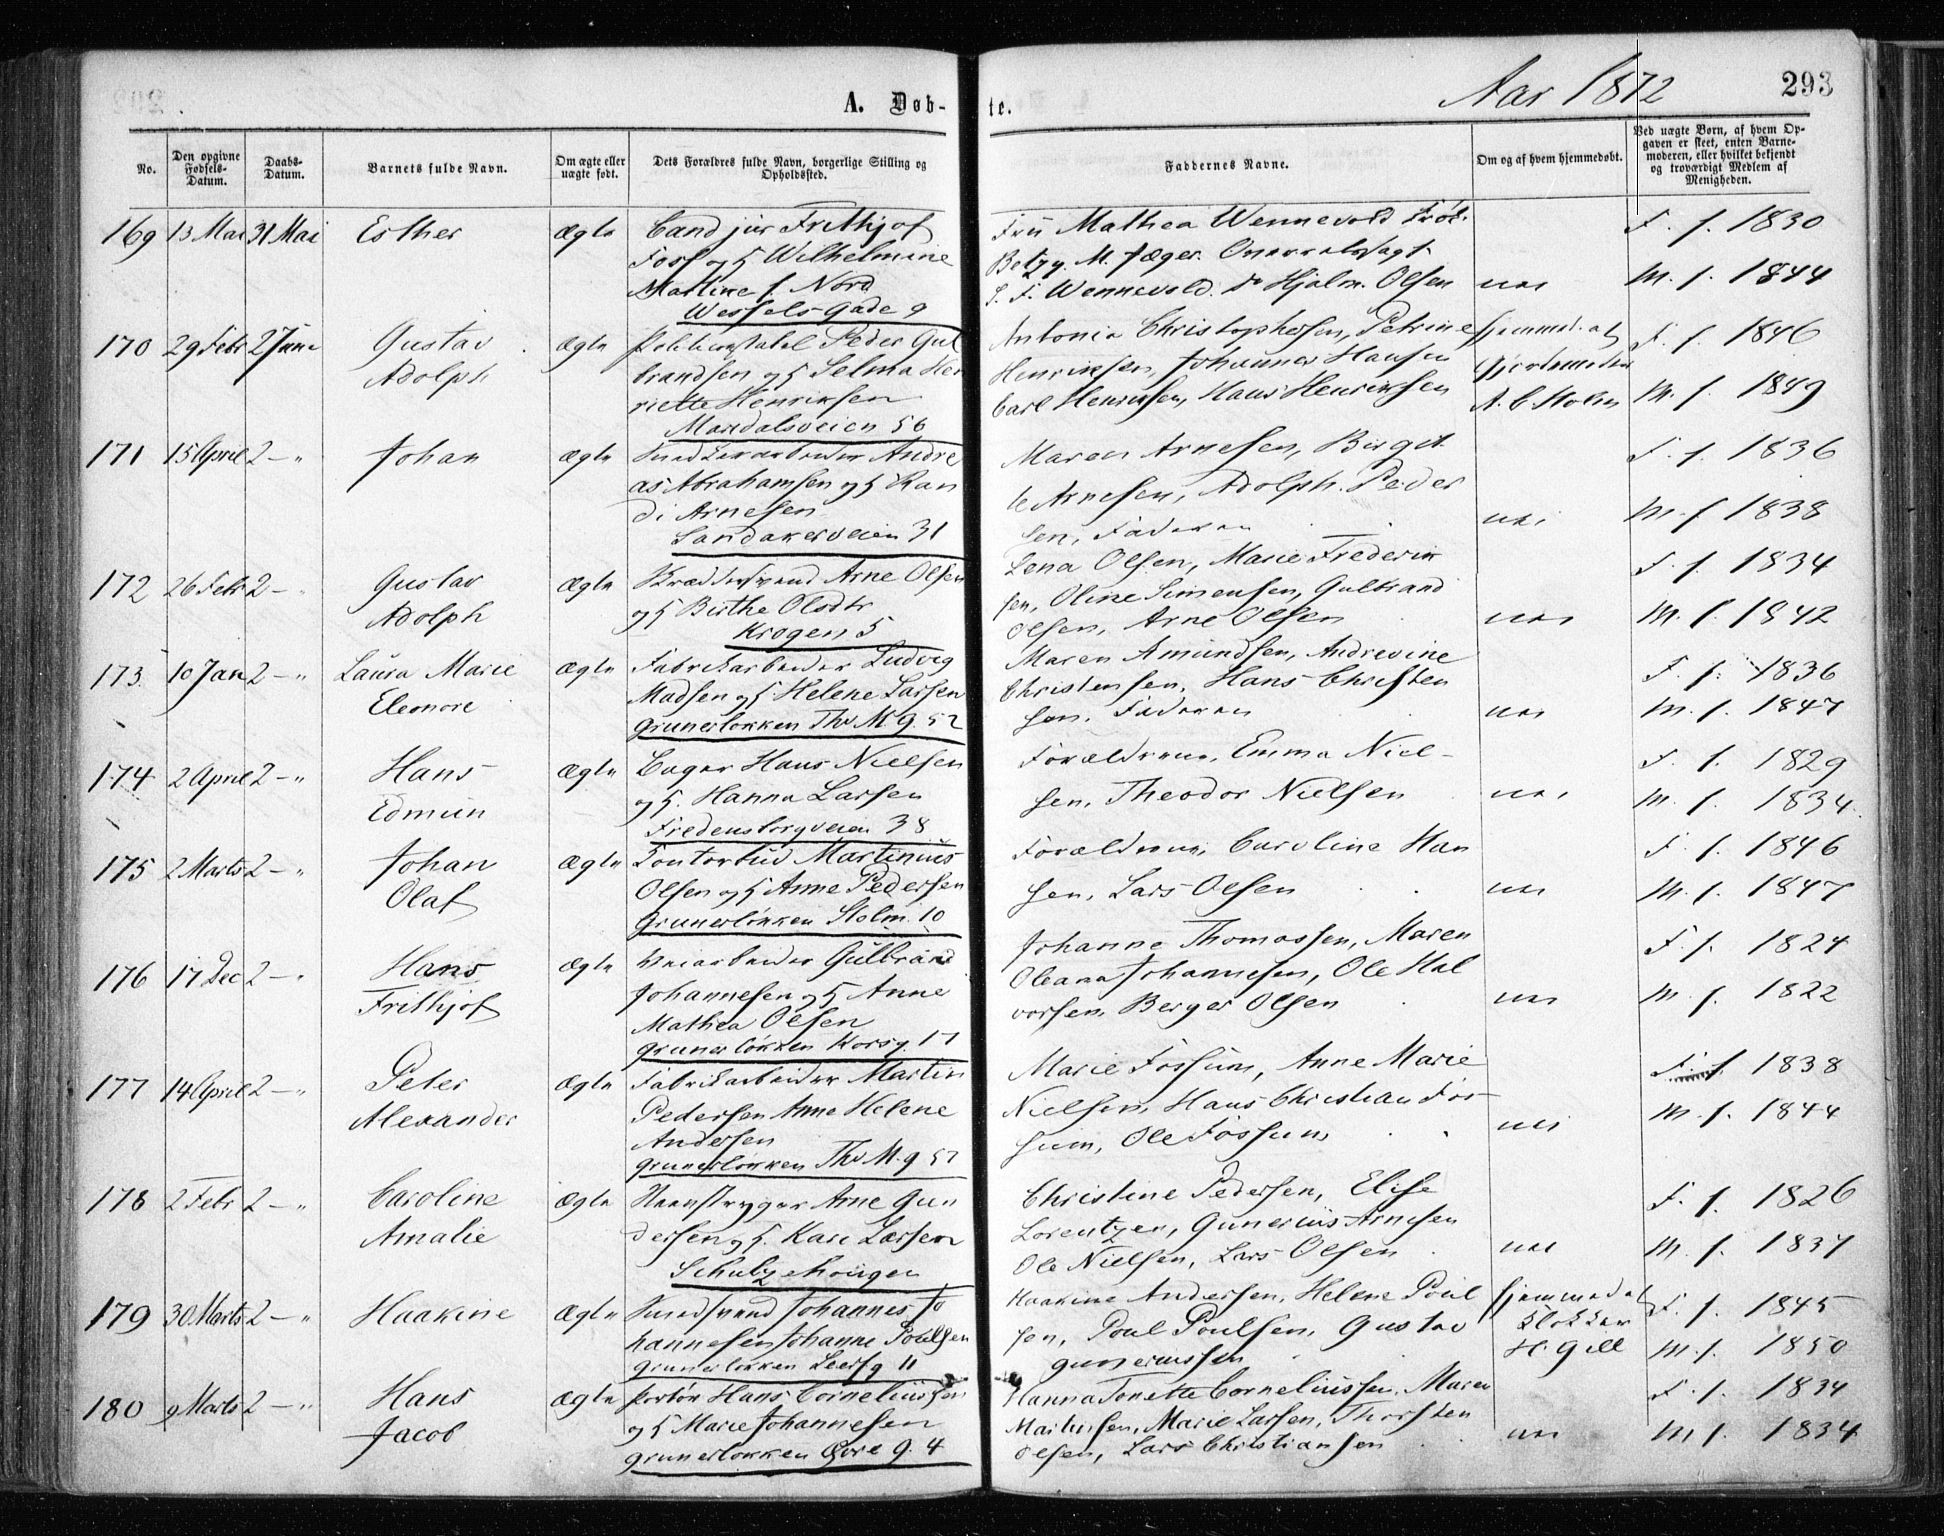 Aar 1872 293
A. Døb- te.
No. Den opgivne Fødsels-Datum. Daabs-Datum. Barnets fulde Navn. Om ægte eller uægte født. Dets Forældres fulde Navn, borgerlige Stilling og Opholdssted. Faddernes Navne. Om og af hvem hjemmedøbt. Ved uægte Børn, af hvem Opgaven er skeet, enten Barnemoderen, eller hvilket bekjendt og troværdigt Medlem af Menigheden.
169 13 Mai 31 Mai Esther ægte Cand jur Frithjof Fru Mathea Wennevold Frøk. F. f. 1830
Foss og h Wilhelmine Betzy M. Jæger
Martine f Nord S. F. Wennevold. Hjalm. Olsen nei M. f. 1844
Wessels Gade 9
170 29 Febr 2 Juni Gustav ægte Politikonstabel Peder Gul Antonia Christophersen, Petrine hjemmed. af F. f. 1846
Adolph brandsen og h Selma Hen Henriksen, Johannes Hansen Gjordemoder
riette Henriksen Carl Henriksen, Hans Henriksen A. C. Holm M. f. 1849
Maridalsveien 56
171 15 April 2 - " Johan ægte Snedkerarbeider Andre Maren Arnesen, Birgit F. f. 1836
as Abrahamsen og h Ran te Arnesen, Adolph Peder
di Arnesen sen, Faderen nei M. f. 1838
Sandakerveien 31
172 26 Febr 2 - " Gustav ægte Arne Olsen Lena Olsen, Marie Frederik F. f. 1834
Adolph og h Birthe Olsdtr sen, Oline Simensen, Gulbrand
Krogen 5 Olsen, Arne Olsen nei M. f. 1842
173. 10 Jan 2 - " Laura Marie ægte Fabrikarbeider Ludvig Maren Amundsen, Andrevine F. f. 1836
Eleonore Madsen og h Helene Larsen Christensen, Hans Christen
Grunerløkken Thv M. g. 52 sen, Faderen nei M. f. 1847
174 2 April 2 - " Hans ægte Bager Hans Nielsen Forældrene, Emma Niel- F. f. 1829
Edmun og h. Hanna Larsen sen, Theodor Nielsen nei M. f. 1834
Fredensborgveien 38
175 2 Marts 2 - " Johan ægte Kontorbud Martinius Forældrene, Caroline Han F. f. 1846
Olaf Olsen og h Anne Pedersen sen, Lars Olsen nei M. f. 1847
Grunerløkken Holm. 10
176 17 Dec 2 - " Hans ægte Veiarbeider Gulbrand Johanne Thomassen, Maren F. f. 1824
Frithjof Johannesen og h Anne Oleana Johannesen, Ole Hal
Mathea Olsen vorsen, Berger Olsen nei M. f. 1822
Grunerløkken Korsg. 17
177 14 April 2 - " Peter ægte Fabrikarbeider Martin Marie Fossum, Anne Marie F. f 1838
Alexander Pedersen Anne Helene Nielsen, Hans Christian Fos-
Andersen sum, Ole Fossum nei M. f. 1844
Grunerløkken Thv M. g 57
178 2 Febr 2 - " Caroline ægte Arne Gun Christine Pedersen, Elise F. f. 1826
Amalie dersen og h. Kari Larsen Lorentzen, Gunerius Arnesen
Schultzehougen Ole Nielsen, Lars Olsen nei M. f. 1837
179 30 Marts 2 - " Haakine ægte Smedsvend Johannes Jo Haakine Andersen, Helene Poul hjemmed af F. f. 1845
hannesen Johanne Poulsen sen, Poul Poulsen, Gustav Klokker
Grunerløkken Leersg 11 Gunerussen H. Gill M. f. 1850
180 9 Marts 2 - " Hans ægte Portør Hans Corneliussen Hanna Tonette Corneliussen, Maren F. f. 1834
Jacob og h Marie Johannesen Martinsen, Marie Larsen, Thorsten
Grunerløkken Øvre g. 4 Olsen, Lars Christiansen nei M f. 1834